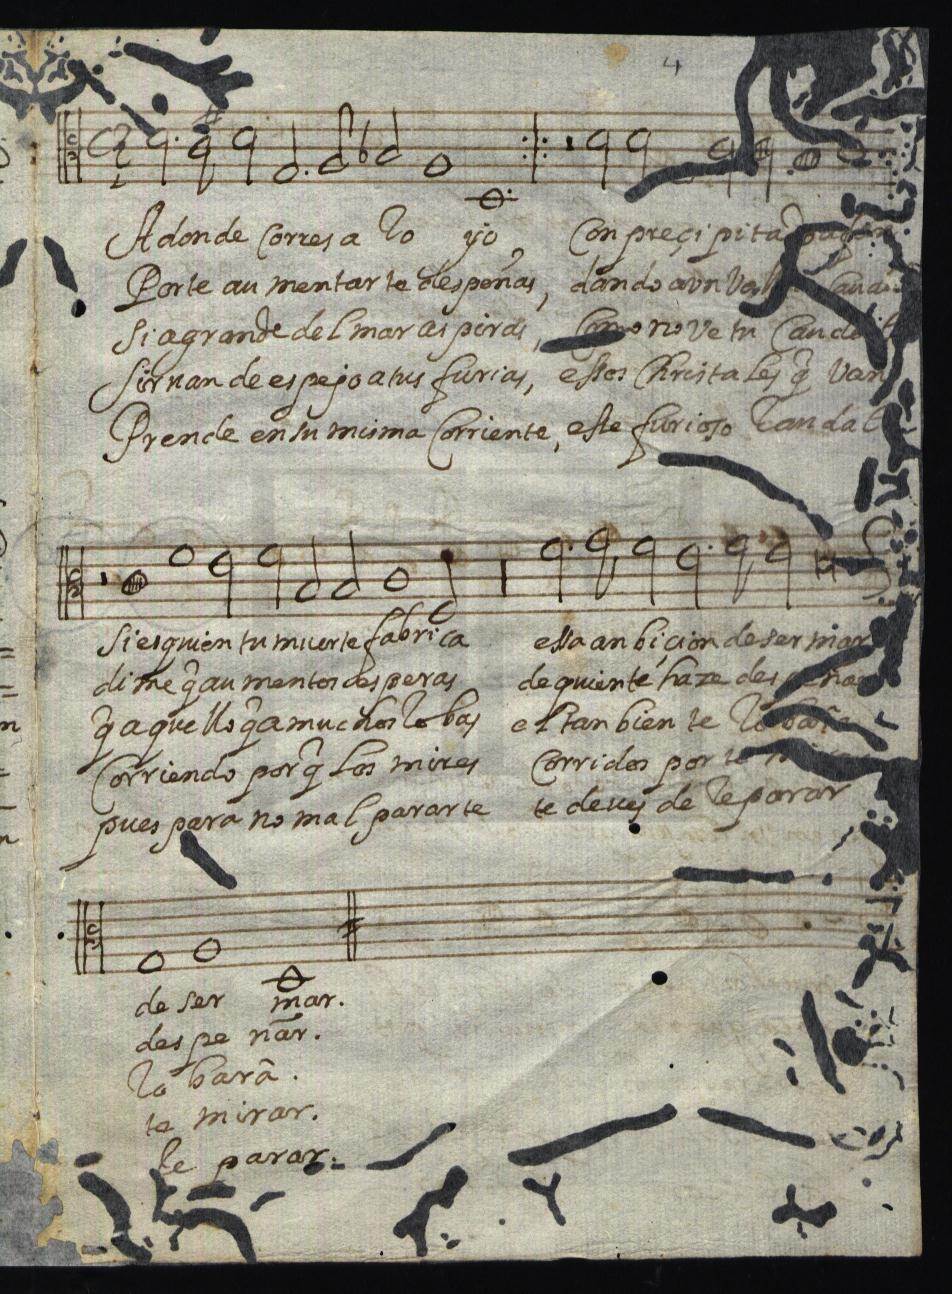 4
Adonde corres arroyo, con preçipitado
Porte au mentarte despeñas, dando a un
Si a grande del mar aspiras, Como no ve tu Caudal
Siruan de espejo a tus furias, essos Christales q̃ Van
Prende en su misma Corriente, este furioso raudal
Si es quien tu muerte fabrica essa anbiçion de ser mar
dime q̃ au mentos desperas de quien te haze despeñar
q̃ aquello q̃ a muchos robas el tan bien te robarà
Corriendo porq̃ los mires Corridos por te mirar
pues para no mal pararte te deues de reparar
de ser mar.
despe ñar.
ro barâ.
te mirar.
re parar.